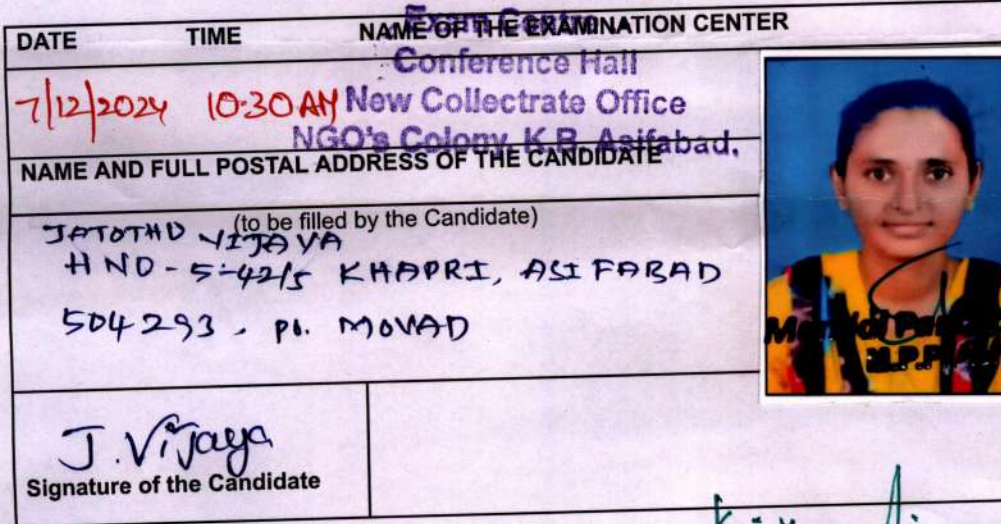 DATE TIME NAME OF THE EXAMINATION CENTER
Exam Centre
Conference Hall
7/12/2024 10:30 AM New Collectrate Office
NGO's Colony, K.B. Asifabad.
NAME AND FULL POSTAL ADDRESS OF THE CANDIDATE
(to be filled by the Candidate)
JATOTHD VIJAYA
H NO - 5-42/5 KHAPRI, ASIFABAD
504293, po. MOVAD
J. Vijaya
Signature of the Candidate